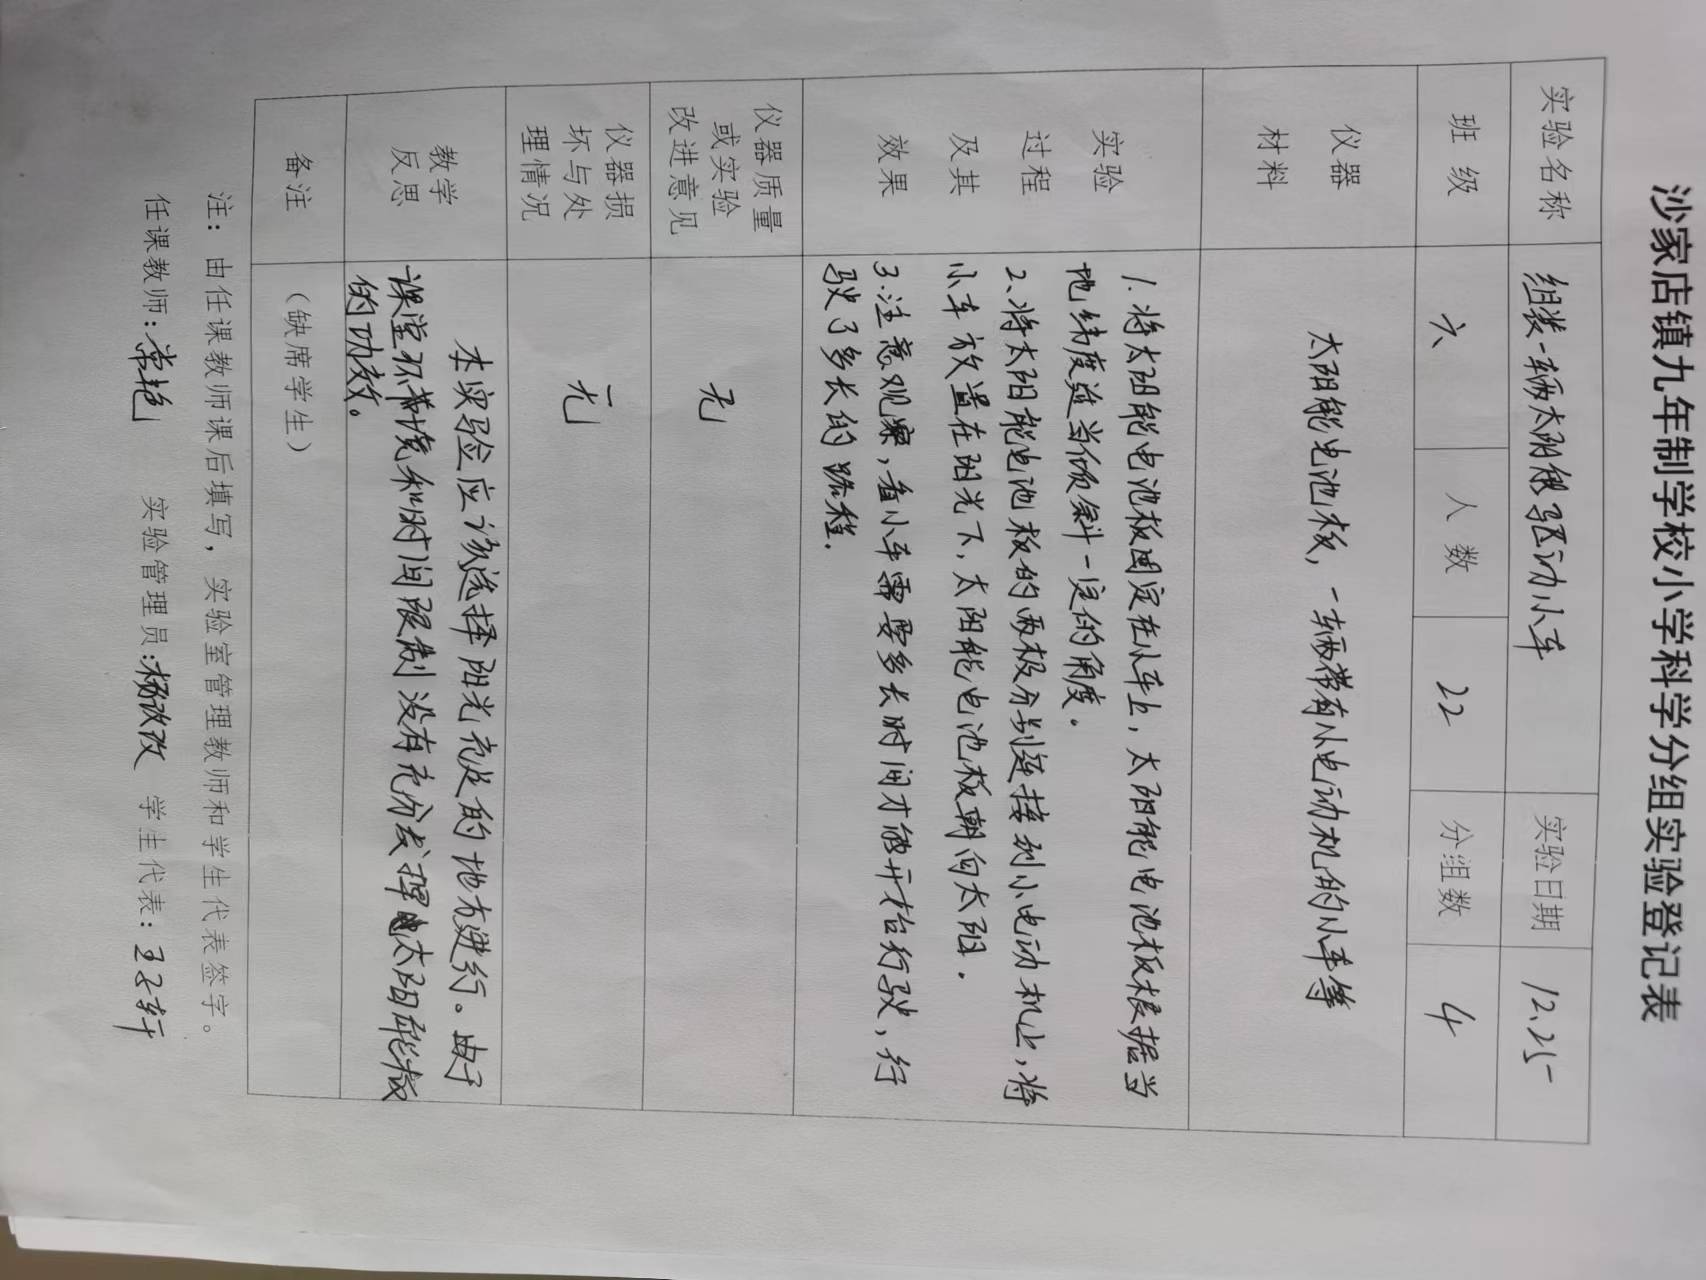 沙家店镇九年制学校小学科学分组实验登记表
实验名称 组装一辆太阳能驱动小车 实验日期 12.25
班级 六 人数 22 分组数 4
仪器
材料
太阳能电池板，一辆带有小电动机的小车等
实验
过程
及其
效果
1.将太阳能电池板固定在小车上，太阳能电池板根据当
地纬度适当倾斜一定的角度。
2、将太阳能电池板的两极分别连接到小电动机上，将
小车放置在阳光下，太阳能电池板朝向太阳．
3.注意观察，看小车需要多长时间才能开始行驶，行
驶了多长的路程．
仪器质量
或实验
改进意见
无
仪器损
坏与处
理情况
无
教学
反思
本实验应该选择阳光充足的地方进行。由于
课堂环境和时间限制没有充分发挥太阳能板
的功效。
备注 （缺席学生）
注：由任课教师课后填写，实验室管理教师和学生代表签字。
任课教师:常艳 实验管理员:杨改改 学生代表:王子轩